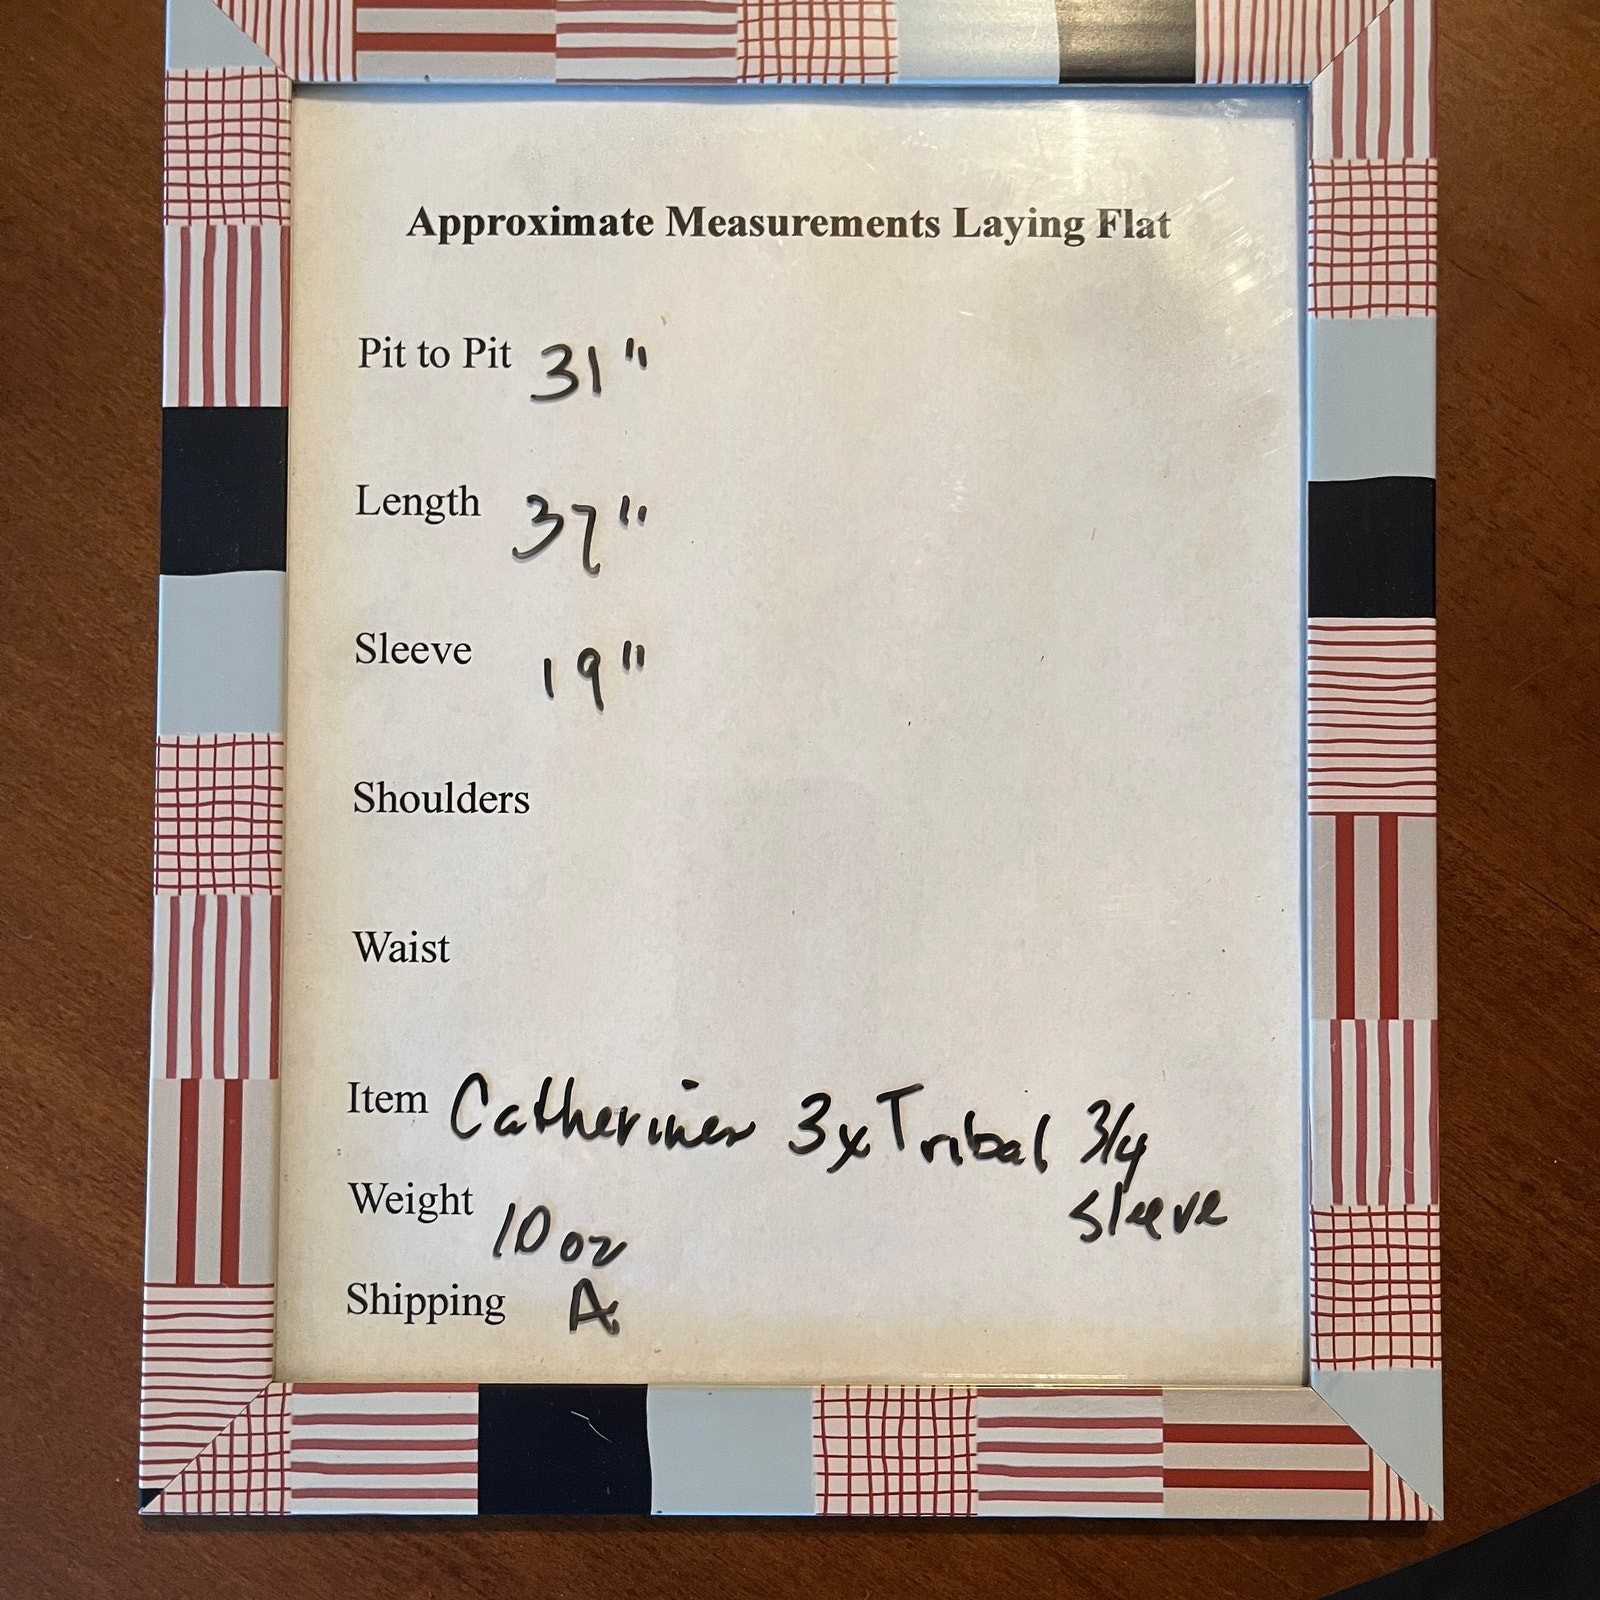 Approximate Measurements Laying Flat
Pit to Pit 31"
Length 37"
Sleeve 19"
Shoulders
Waist
Item Catherines 3x Tribal 3/4
sleeve
Weight 10 oz
Shipping A